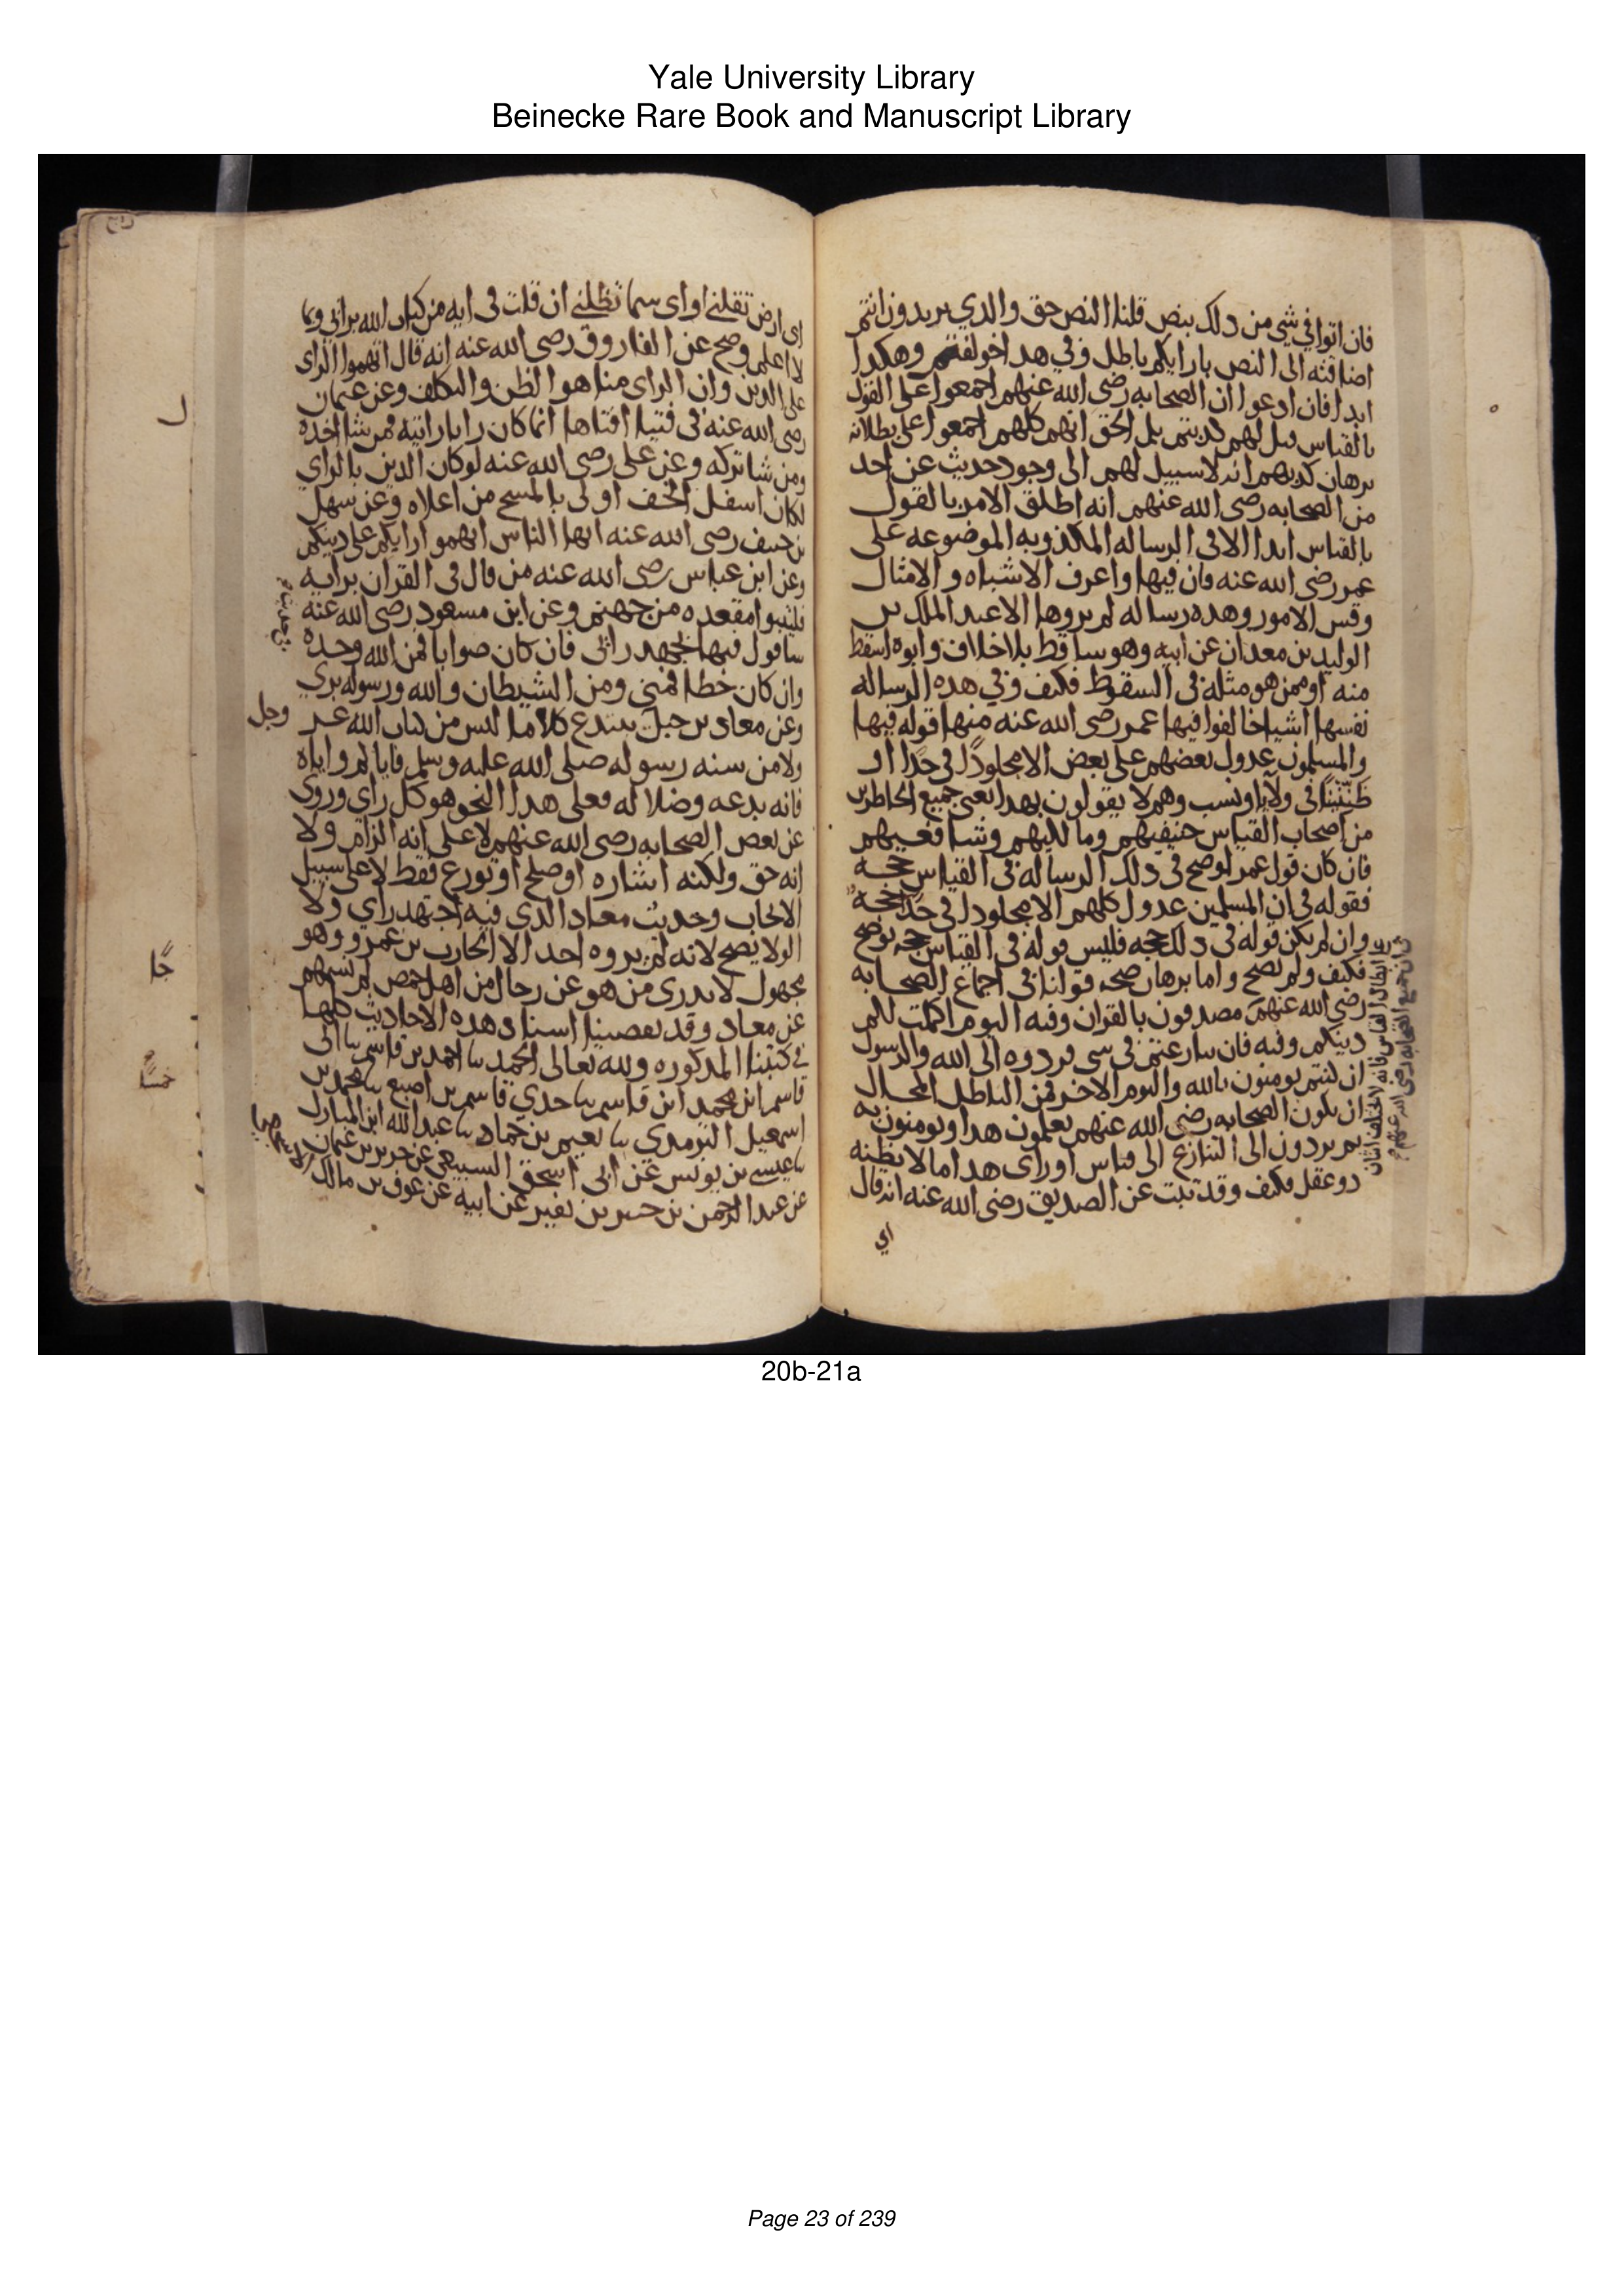 Yale University Library
Beinecke Rare Book and Manuscript Library
فان اتوا في شي من دلك بنص قلنا النص حق والدي يريدون انتم
اضافته الى النص بارايكم باطل وفي هدا خولفتم وهكدا
ابدا فان ادعوا ان الصحابه رضي الله عنهم اجمعوا على القول
بالقياس قيل لهم كدبتم بل الحق انهم كلهم اجمعوا على بطلانه
برهان كدبهم انه لا سبيل لهم الى وجود حديث عن احد
من الصحابه رضى الله عنهم انه اطلق الامر بالقول
بالقياس ابدا الا في الرساله المكذوبه الموضوعه على
عمر رضى الله عنه فان فيها واعرف الاشباه والامثال
وقس الامور وهده رساله لم يروها الا عبد الملك بن
الوليد بن معدان عن ابيه وهو ساقط بلا خلاف وابوه اسقط
منه او ممن هو مثله في السقوط فكيف وفي هده الرساله
نفسها اشيا خالفوا فيها عمر رضى الله عنه منها قوله فيها
والمسلمون عدول بعضهم على بعض الا مجلودا في حد او
ظنينا في ولا او نسب وهم لا يقولون بهدا يعني جميع الحاضرين
من اصحاب القياس حنفيهم ومالكيهم وشافعيهم
فان كان قول عمر لو صح في دلك الرساله في القياس حجه
فقوله في ان المسلمين عدول كلهم الا مجلودا في حد حجه
وان لم يكن قوله في دلك حجه فليس قوله في القياس حجه لو صح
فكيف ولم يصح واما برهان صحه قولنا في اجماع الصحابه
رضي الله عنهم مصدقون بالقران وفيه اليوم اكملت لكم
دينكم وفيه فان تنازعتم في شي فردوه الى الله والرسول
ان كنتم تومنون بالله واليوم الاخر فمن الباطل المحال
ان يكون الصحابه رضي الله عنهم يعلمون هدا ويومنون به
ثم يردون الى التنازع الى قياس او راى هدا ما لا يظنه
دو عقل فكيف وقد ثبت عن الصديق رضي الله عنه انه قال
اي
على ابطال القياس فانه لا يختلف اثنان
في ان جميع الصحابه رضى الله عنهم
اي ارض تقلني او اي سما تظلني ان قلت في ايه من كتاب الله برائي وبما
لا اعلم وصح عن الفاروق رضي الله عنه انه قال اتهموا الراى
على الدين وان الراى منا هو الظن والتكلف وعن عثمان
رضى الله عنه في فتيا افتاها انما كان رايا رايته فمن شا اخده
ومن شا تركه وعن على رضى الله عنه لو كان الدين بالراي
لكان اسفل الخف اولى بالمسح من اعلاه وعن سهل
بن حنيف رضى الله عنه ايها الناس اتهموا ارايكم على دينكم
وعن ابن عباس رضى الله عنه من قال في القران برايه
فليتبوا مقعده من جهنم وعن ابن مسعود رضي الله عنه
ساقول فيها بجهد رائي فان كان صوابا فمن الله وحده
وان كان خطا فمني ومن الشيطان والله ورسوله بري
وعن معاد بن جبل يبتدع كلاما ليس من كتاب الله عز وجل
ولا من سنه رسوله صلى الله عليه وسلم فاياكم واياه
فانه بدعه وضلاله فعلى هدا النحو هو كل راي وروى
عن بعض الصحابه رضي الله عنهم لا على انه الزام ولا
انه حق ولكنه اشاره او صلح او تورع فقط لا على سبيل
الايجاب وحديث معاد الدى فيه اجتهد راي ولا
الو لا يصح لانه لم يروه احد الا الحارث بن عمرو وهو
مجهول لا يدرى من هو عن رجال من اهل حمص لم يسمهم
عن معاد وقد تقصينا اسناد هده الاحاديث كلها
في كتبنا المدكوره ولله تعالى الحمد نا احمد بن قاسم نا ابي
قاسم ابن محمد ابن قاسم نا جدي قاسم بن اصبع نا محمد بن
اسمعيل الترمدى نا نعيم بن حماد نا عبد الله ابن المبارك
نا عيسى بن يونس عن ابي اسحق السبيعي عن حريز بن عثمان
عن عبد الرحمن بن جبير بن نفير عن ابيه عن عوف بن مالك الاشجعي
20b-21a
Page 23 of 239